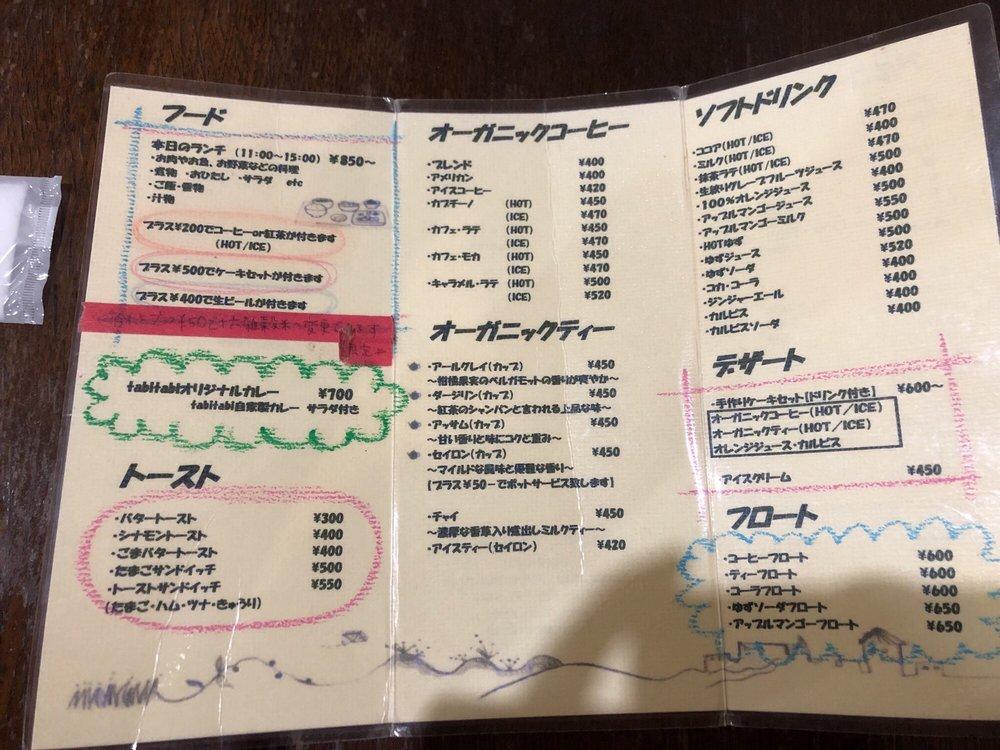 フード
本日のランチ (11:00~15:00) ¥850~
・お肉やお魚、お野菜などの料理
・煮物 ・おひたし ・サラダ etc
・ご飯・香物
・汁物
プラス¥200でコーヒーor紅茶が付きます
(HOT/ICE)
プラス¥500でケーキセットが付きます
プラス¥400で生ビールが付きます
tabitabiオリジナルカレー ¥700
tabitabi自家製カレー サラダ付き
トースト
・バタートースト ¥300
・シナモントースト ¥400
・ごまバタートースト ¥400
・たまごサンドイッチ ¥500
・トーストサンドイッチ ¥550
(たまご・ハム・ツナ・きゅうり)
オーガニックコーヒー
・ブレンド ¥400
・アメリカン ¥400
・アイスコーヒー ¥420
・カプチーノ (HOT) ¥450
(ICE) ¥470
・カフェ・ラテ (HOT) ¥450
(ICE) ¥470
・カフェ・モカ (HOT) ¥450
(ICE) ¥470
・キャラメル・ラテ (HOT) ¥500
(ICE) ¥520
オーガニックティー
・アールグレイ(カップ) ¥450
~柑橘果実のベルガモットの香りが爽やか~
・ダージリン(カップ) ¥450
~紅茶のシャンパンと言われる上品な味~
・アッサム(カップ) ¥450
~甘い香りと味にコクと重み~
・セイロン(カップ) ¥450
~マイルドな風味と優雅な香り~
[プラス¥50-でポットサービス致します]
・チャイ ¥450
~濃厚な香草入り煮出しミルクティー~
・アイスティー(セイロン) ¥420
ソフトドリンク
・ココア(HOT/ICE) ¥470
・ミルク(HOT/ICE) ¥400
・抹茶ラテ(HOT/ICE) ¥470
・生絞りグレープフルーツジュース ¥500
・100%オレンジジュース ¥500
・アップルマンゴージュース ¥500
・アップルマンゴーミルク ¥550
・HOTゆず ¥500
・ゆずジュース ¥500
・ゆずソーダ ¥520
・コカ・コーラ ¥400
・ジンジャーエール ¥400
・カルピス ¥400
・カルピスソーダ ¥400
デザート
・手作りケーキセット[ドリンク付き] ¥600~
オーガニックコーヒー(HOT/ICE)
オーガニックティー(HOT/ICE)
オレンジジュース・カルピス
・アイスクリーム ¥450
フロート
・コーヒーフロート ¥600
・ティーフロート ¥600
・コーラフロート ¥600
・ゆずソーダフロート ¥650
・アップルマンゴーフロート ¥650